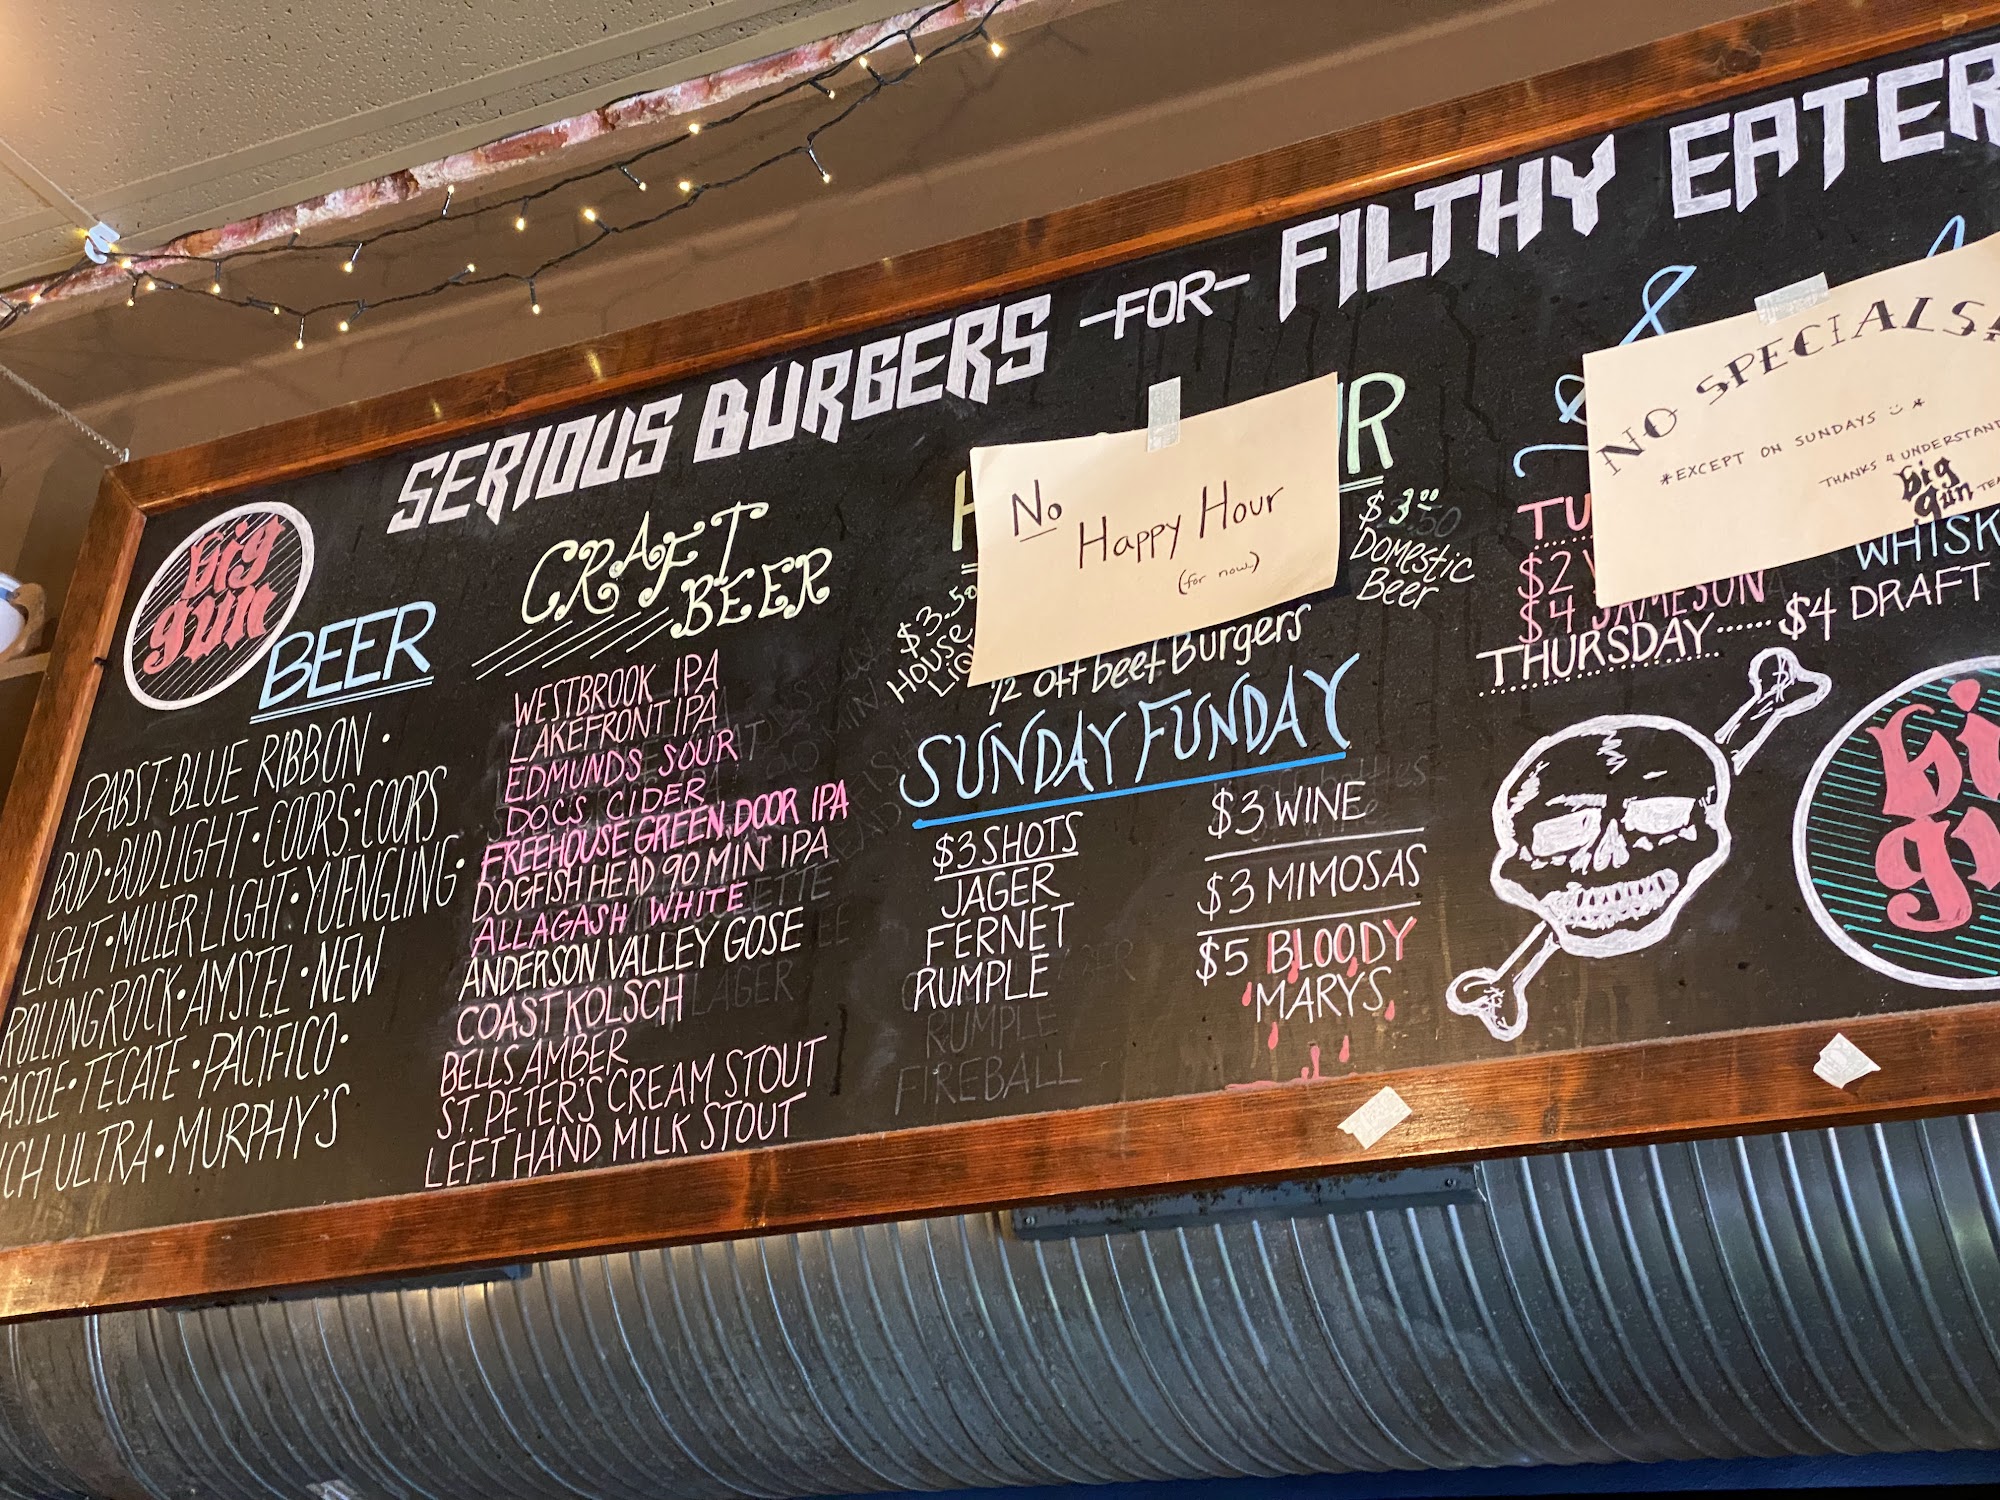 SERIOUS BURGERS -FOR- FILTHY EATER
big
gun
BEER
PABST BLUE RIBBON •
BUD • BUD LIGHT • COORS • COORS
LIGHT • MILLER LIGHT • YUENGLING •
ROLLING ROCK • AMSTEL • NEW
CASTLE • TECATE • PACIFICO •
ULTRA • MURPHY'S
CRAFT
BEER
WESTBROOK IPA
LAKEFRONT IPA
EDMUNDS SOUR
DOCS CIDER
FREEHOUSE GREEN DOOR IPA
DOGFISH HEAD 90 MIN IPA
ALLAGASH WHITE
ANDERSON VALLEY GOSE
COAST KOLSCH
BELLS AMBER
ST. PETER'S CREAM STOUT
LEFT HAND MILK STOUT
No
Happy Hour
(for now)
$3.50
HOUSE
$3.00
Domestic
Beer
1/2 Off beef Burgers
SUNDAY FUNDAY
$3 SHOTS
JAGER
FERNET
RUMPLE
RUMPLE
FIREBALL
$3 WINE
$3 MIMOSAS
$5 BLOODY
MARYS
NO SPECIALS
*EXCEPT ON SUNDAYS *
THANKS 4 UNDERSTAND
big
gun
TU
$2
$4 JAMESON
WHISK
THURSDAY ...... $4 DRAFT
bi
gu